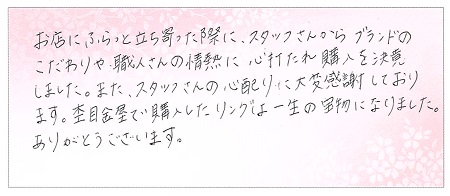 お店にふらっと立ち寄った際に、スタッフさんから ブランドの
こだわりや職人さんの情熱に 心打たれ購入を決意
しました。また、スタッフさんの心配りに大変感謝しており
ます。杢目金屋で購入したリングは一生の宝物になりました。
ありがとうございます。